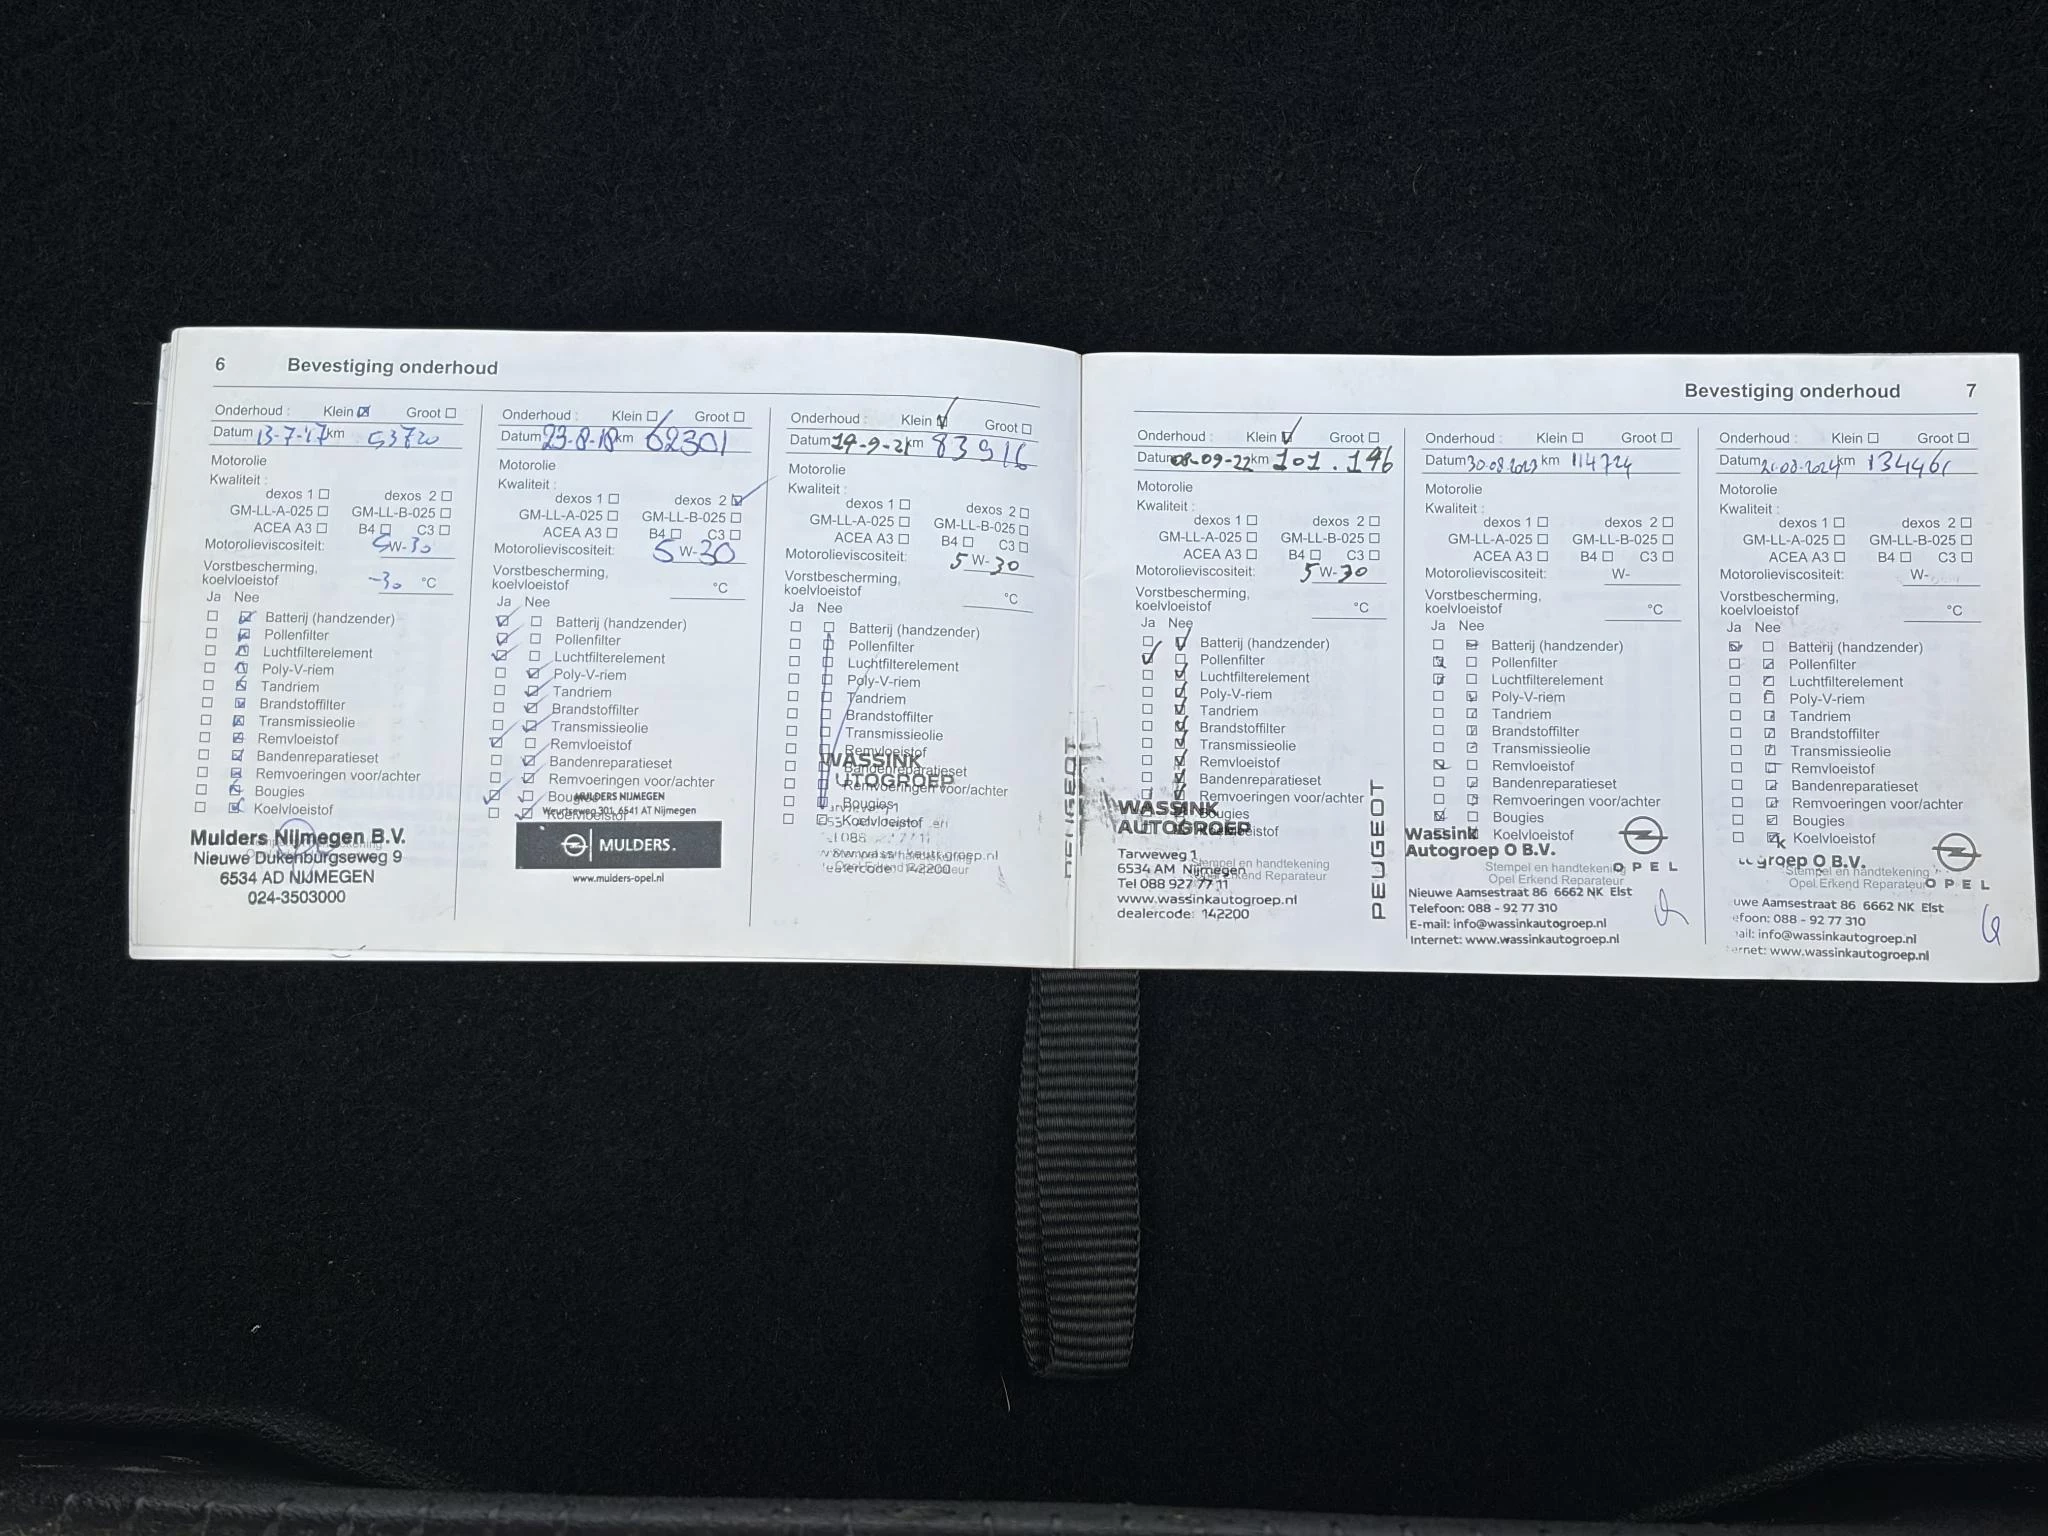 6 Bevestiging onderhoud
Onderhoud : Klein Groot
Datum 13-7-'17 km 53720
Motorolie
Kwaliteit :
dexos 1 dexos 2
GM-LL-A-025 GM-LL-B-025
ACEA A3 B4 C3
Motorolieviscositeit: 5W-30
Vorstbescherming,
koelvloeistof -30 °C
Ja Nee
Batterij (handzender)
Pollenfilter
Luchtfilterelement
Poly-V-riem
Tandriem
Brandstoffilter
Transmissieolie
Remvloeistof
Bandenreparatieset
Remvoeringen voor/achter
Bougies
Koelvloeistof
Mulders Nijmegen B.V.
Nieuwe Dukenburgseweg 9
6534 AD NIJMEGEN
024-3503000
Onderhoud : Klein Groot
Datum 23-8-18 km 62301
Motorolie
Kwaliteit :
dexos 1 dexos 2
GM-LL-A-025 GM-LL-B-025
ACEA A3 B4 C3
Motorolieviscositeit: 5 W-30
Vorstbescherming,
koelvloeistof °C
Ja Nee
Batterij (handzender)
Pollenfilter
Luchtfilterelement
Poly-V-riem
Tandriem
Brandstoffilter
Transmissieolie
Remvloeistof
Bandenreparatieset
Remvoeringen voor/achter
Bougies
MULDERS NIJMEGEN
Weurtseweg 301, 6541 AT Nijmegen
Koelvloeistof
MULDERS.
www.mulders-opel.nl
Onderhoud : Klein Groot
Datum 14-9-21 km 83916
Motorolie
Kwaliteit :
dexos 1 dexos 2
GM-LL-A-025 GM-LL-B-025
ACEA A3 B4 C3
Motorolieviscositeit: 5 W-30
Vorstbescherming,
koelvloeistof °C
Ja Nee
Batterij (handzender)
Pollenfilter
Luchtfilterelement
Poly-V-riem
Tandriem
Brandstoffilter
Transmissieolie
Remvloeistof
WASSINK
Bandenreparatieset
UTOGROEP
Remvoeringen voor/achter
Bougies
Koelvloeistof
142200
PEUGEOT
Bevestiging onderhoud 7
Onderhoud : Klein Groot
Datum 08-09-22 km 101.196
Motorolie
Kwaliteit :
dexos 1 dexos 2
GM-LL-A-025 GM-LL-B-025
ACEA A3 B4 C3
Motorolieviscositeit: 5 W-30
Vorstbescherming,
koelvloeistof °C
Ja Nee
Batterij (handzender)
Pollenfilter
Luchtfilterelement
Poly-V-riem
Tandriem
Brandstoffilter
Transmissieolie
Remvloeistof
Bandenreparatieset
Remvoeringen voor/achter
Bougies
Koelvloeistof
WASSINK
AUTOGROEP
Stempel en handtekening
Opel Erkend Reparateur
Tarweweg 1
6534 AM Nijmegen
Tel 088 927 77 11
www.wassinkautogroep.nl
dealercode: 142200
PEUGEOT
Onderhoud : Klein Groot
Datum 30.08.2023 km 114724
Motorolie
Kwaliteit :
dexos 1 dexos 2
GM-LL-A-025 GM-LL-B-025
ACEA A3 B4 C3
Motorolieviscositeit: W-
Vorstbescherming,
koelvloeistof °C
Ja Nee
Batterij (handzender)
Pollenfilter
Luchtfilterelement
Poly-V-riem
Tandriem
Brandstoffilter
Transmissieolie
Remvloeistof
Bandenreparatieset
Remvoeringen voor/achter
Bougies
Koelvloeistof
Wassink
Autogroep O B.V.
OPEL
Stempel en handtekening
Opel Erkend Reparateur
Nieuwe Aamsestraat 86 6662 NK Elst
Telefoon: 088 - 92 77 310
E-mail: info@wassinkautogroep.nl
Internet: www.wassinkautogroep.nl
Onderhoud : Klein Groot
Datum km 134461
Motorolie
Kwaliteit :
dexos 1 dexos 2
GM-LL-A-025 GM-LL-B-025
ACEA A3 B4 C3
Motorolieviscositeit: W-
Vorstbescherming,
koelvloeistof °C
Ja Nee
Batterij (handzender)
Pollenfilter
Luchtfilterelement
Poly-V-riem
Tandriem
Brandstoffilter
Transmissieolie
Remvloeistof
Bandenreparatieset
Remvoeringen voor/achter
Bougies
Koelvloeistof
groep O B.V.
OPEL
Stempel en handtekening
Opel Erkend Reparateur
uwe Aamsestraat 86 6662 NK Elst
efoon: 088 - 92 77 310
ail: info@wassinkautogroep.nl
ernet: www.wassinkautogroep.nl